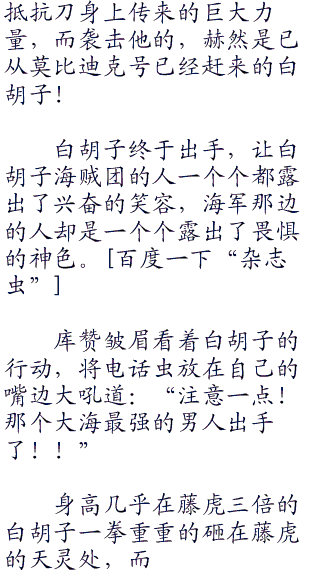 抵抗刀身上传来的巨大力
量，而袭击他的，赫然是已
从莫比迪克号已经赶来的白
胡子！
白胡子终于出手，让白
胡子海贼团的人一个个都露
出了兴奋的笑容，海军那边
的人却是一个个露出了畏惧
的神色。[百度一下“杂志
虫”]
库赞皱眉看着白胡子的
行动，将电话虫放在自己的
嘴边大吼道：“注意一点！
那个大海最强的男人出手
了！！”
身高几乎在藤虎三倍的
白胡子一拳重重的砸在藤虎
的天灵处，而